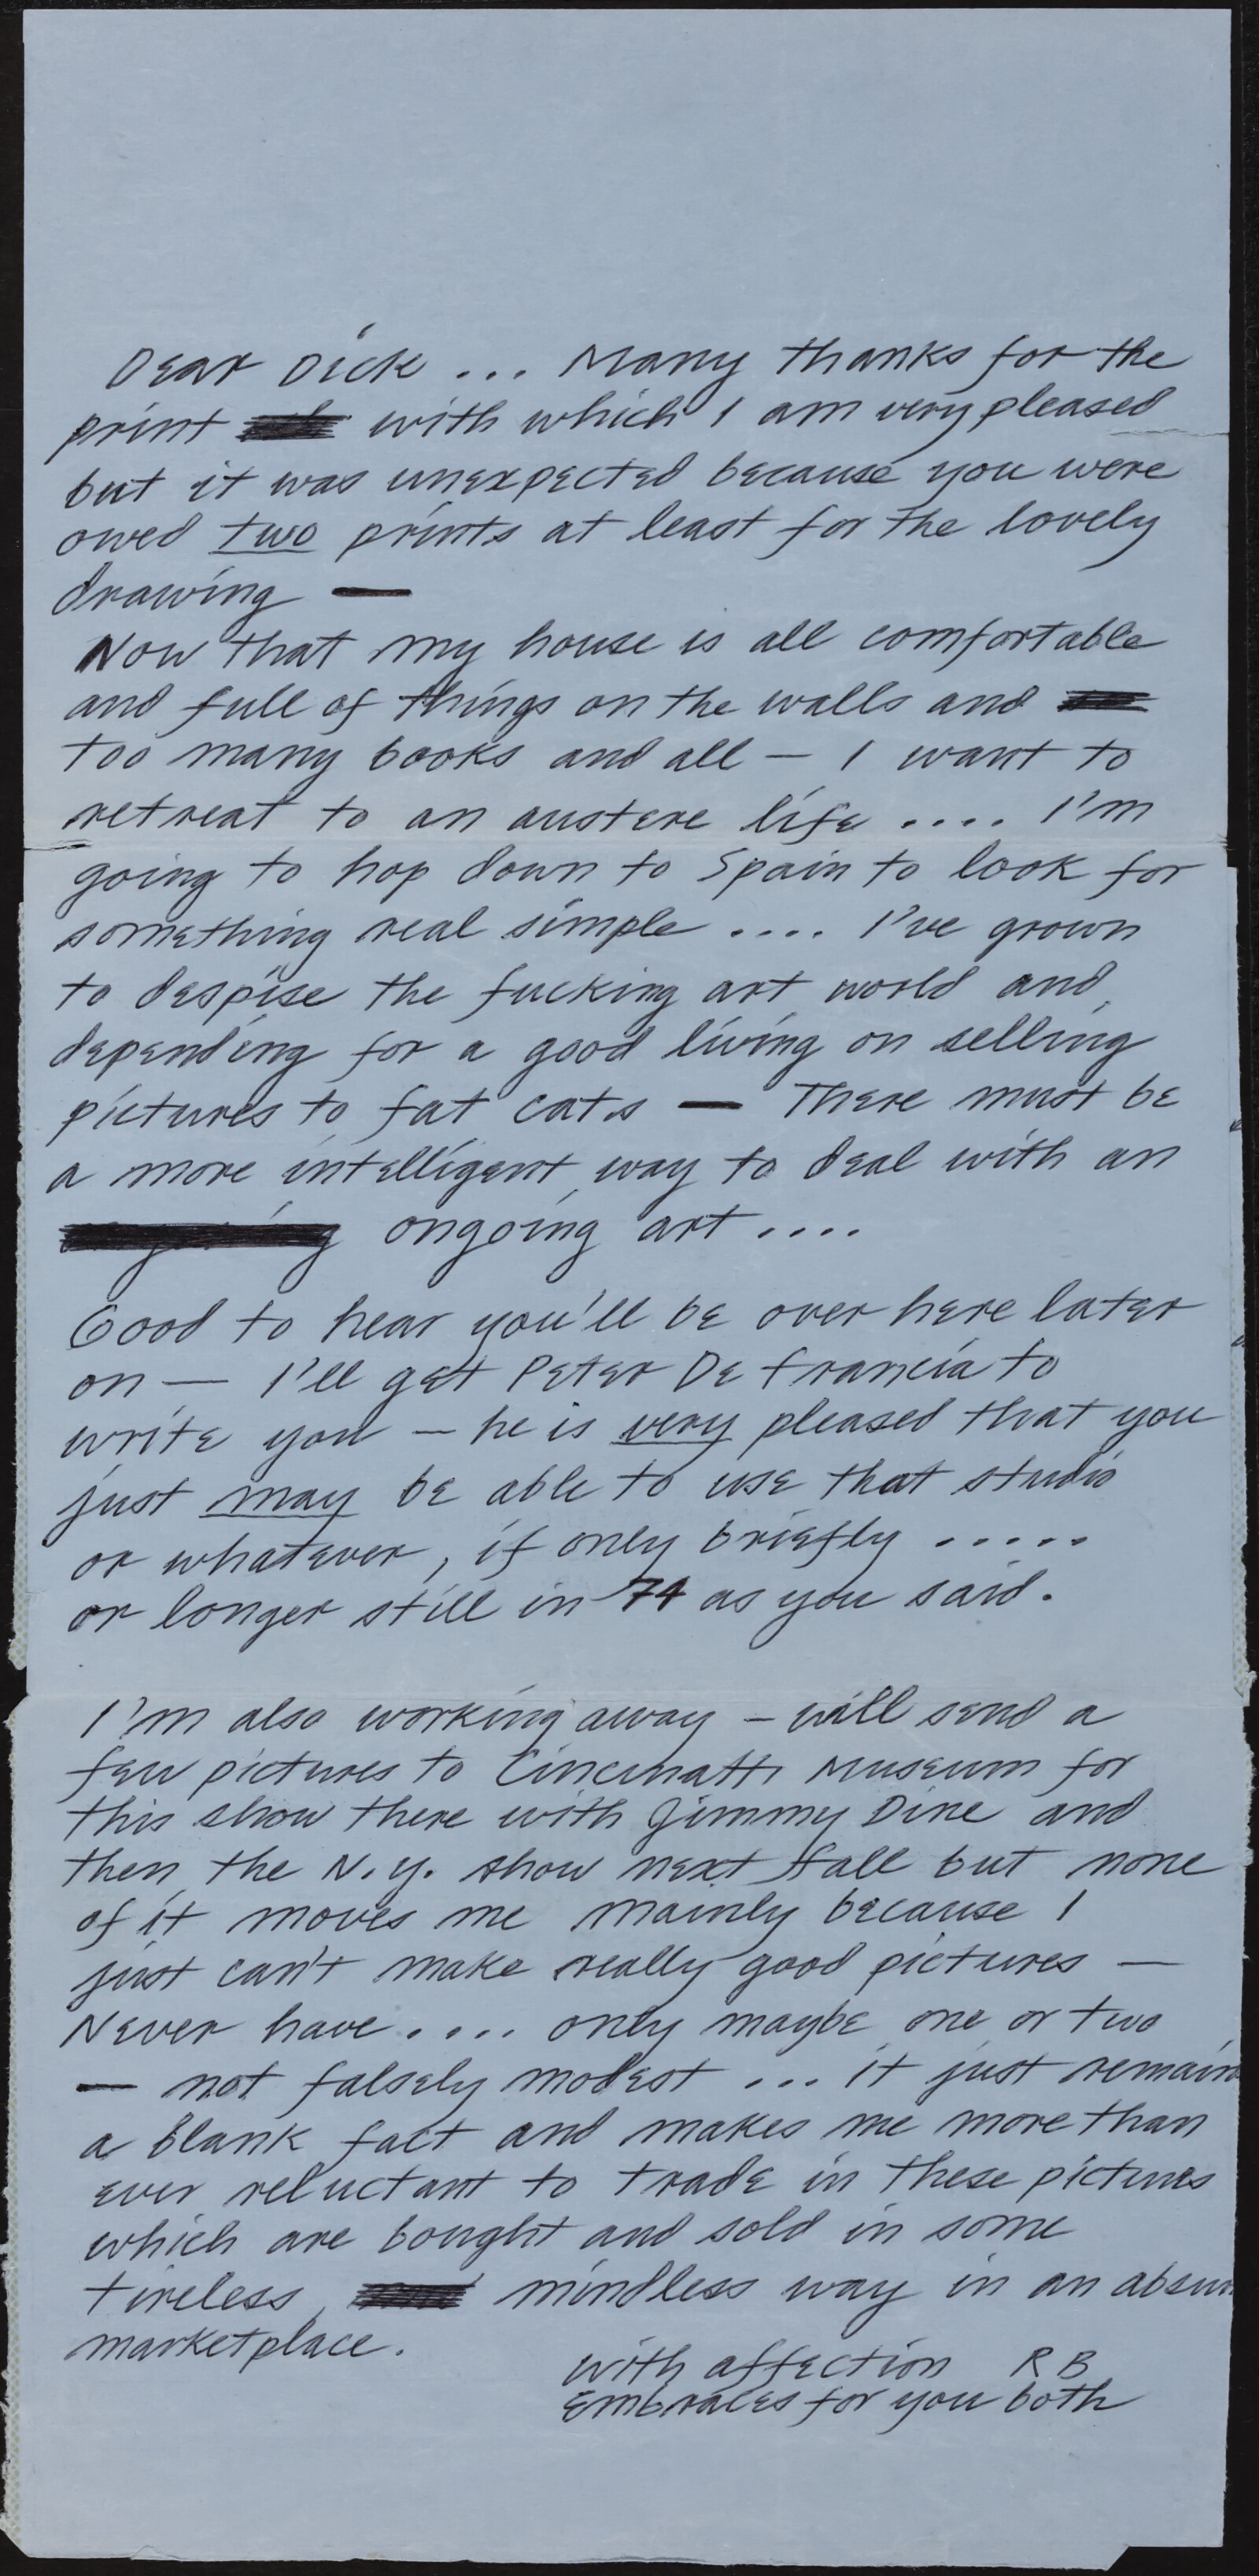 Dear Dick ... Many thanks for the
print with which I am very pleased
but it was unexpected because you were
owed two prints at least for the lovely
drawing —
Now that my house is all comfortable
and full of things on the walls and
too many books and all — I want to
retreat to an austere life .... I'm
going to hop down to Spain to look for
something real simple .... I've grown
to despise the fucking art world and
depending for a good living on selling
pictures to fat cats — There must be
a more intelligent way to deal with an
ongoing art ....
Good to hear you'll be over here later
on — I'll get Peter De Francia to
write you — he is very pleased that you
just may be able to use that studio
or whatever, if only briefly .....
or longer still in 74 as you said.
I'm also working away — will send a
few pictures to Cincinatti Museum for
this show there with Jimmy Dine and
then the N.Y. show next fall but none
of it moves me mainly because I
just can't make really good pictures —
Never have .... only maybe one or two
— not falsely modest ... it just remains
a blank fact and makes me more than
ever reluctant to trade in these pictures
which are bought and sold in some
tireless, mindless way in an absurd
marketplace.
with affection R B
Embraces for you both